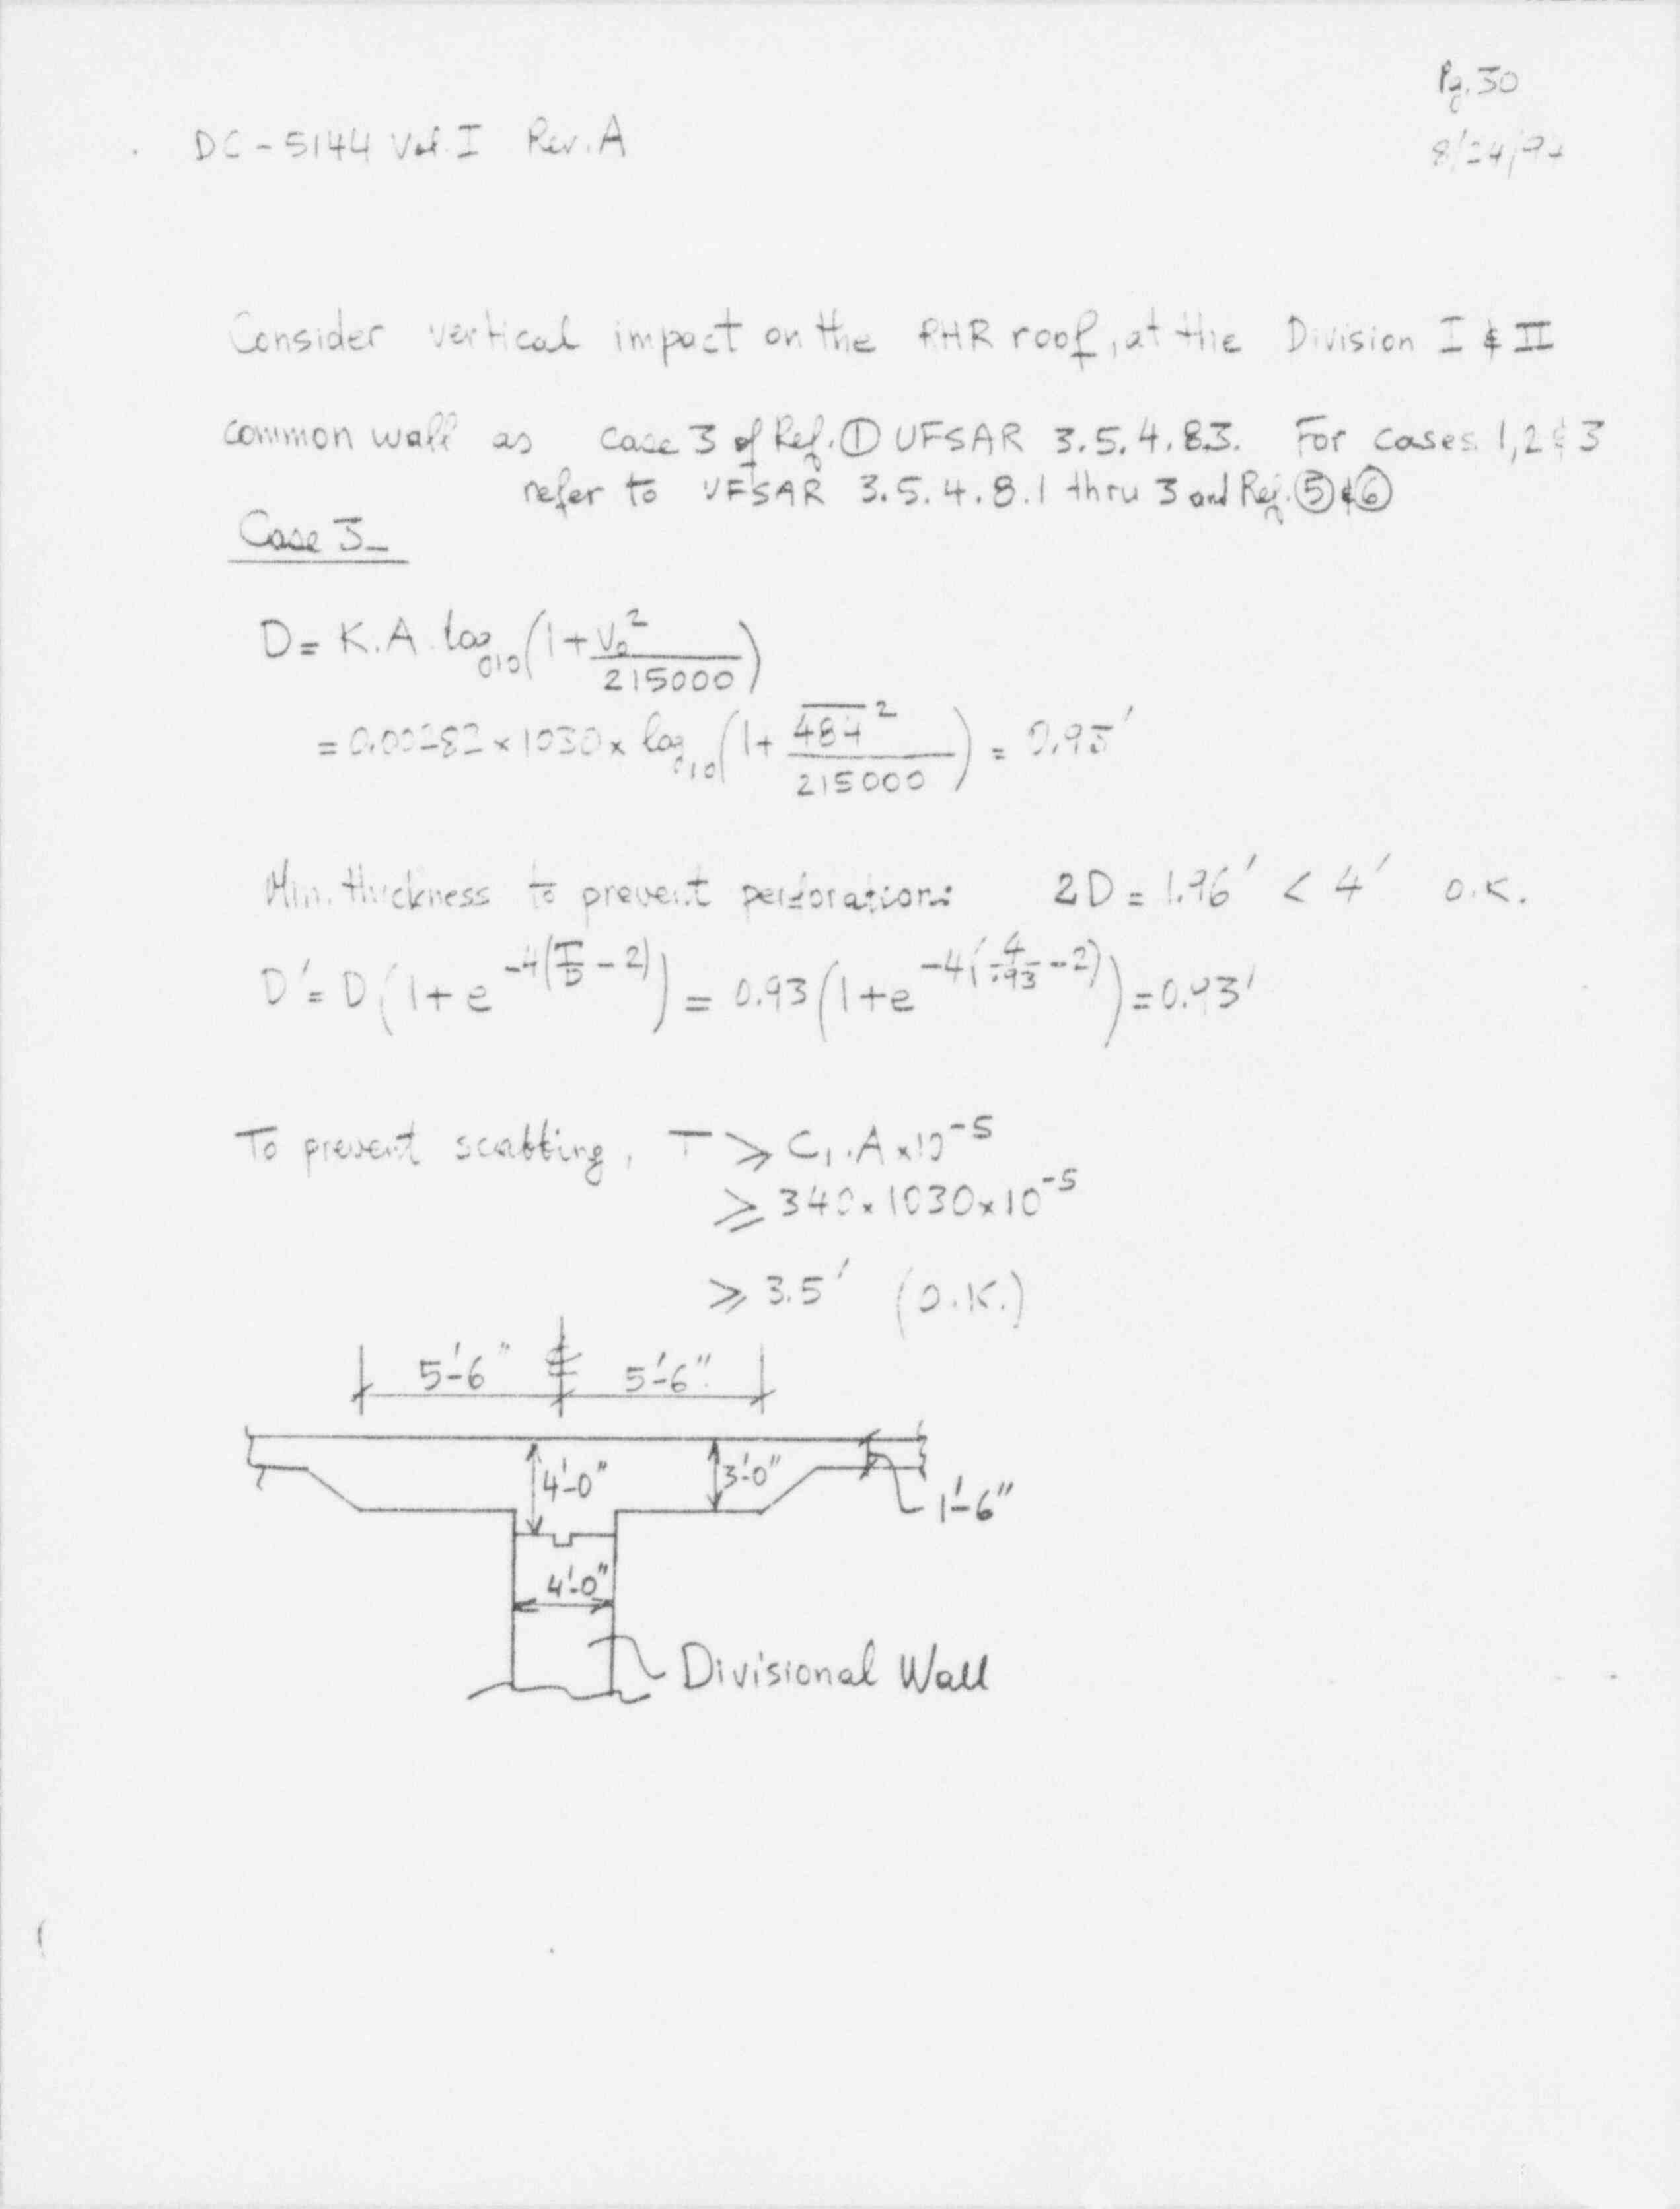 Pg. 30
DC - 5144 Vol. I Rev. A
8/24/94
Consider vertical impact on the RHR roof, at the Division I & II
common wall as case 3 of Ref. ① UFSAR 3.5.4.8.3. For cases 1, 2 & 3
refer to UFSAR 3.5.4.8.1 thru 3 and Ref. ⑤ & ⑥
Case 3_
D = K.A. log₁₀ (1 + V₀² / 215000)
= 0.00282 × 1030 × log₁₀ (1 + 484² / 215000) = 0.93'
Min. thickness to prevent perforation: 2D = 1.96' < 4' O.K.
D' = D (1 + e^-4(T/D - 2)) = 0.93 (1 + e^-4(4/.93 - 2)) = 0.93'
To prevent scabbing, T ⩾ C₁ . A × 10⁻⁵
⩾ 340 × 1030 × 10⁻⁵
⩾ 3.5' (O.K.)
5'-6" ℄ 5'-6"
4'-0" 3'-0"
1'-6"
4'-0"
Divisional Wall